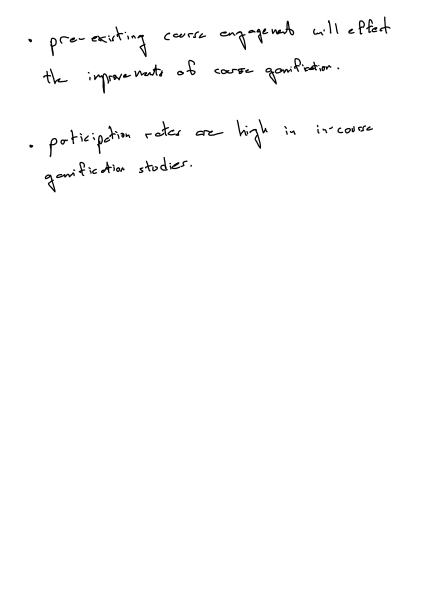 • pre-existing course engagement will effect
the improvements of course gamification.
• participation rates are high in in-course
gamification studies.